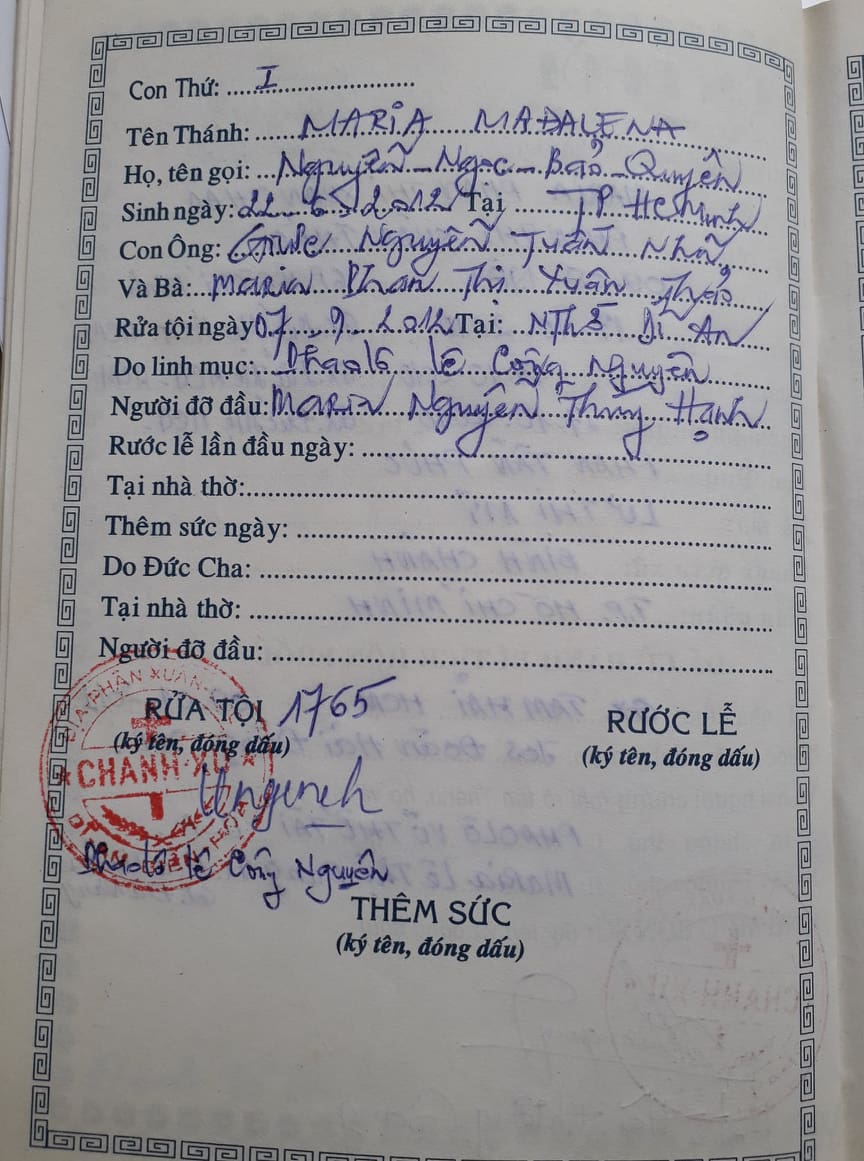 Con Thứ: I
Tên Thánh: MARIA MAĐALENA
Họ, tên gọi: Nguyễn Ngọc Bảo Quyên
Sinh ngày: 22 6 2012 Tại TP HCMinh
Con Ông: Nguyễn Tuấn Nhã
Và Bà: Maria Phan Thị Xuân Thảo
Rửa tội ngày 07 9 2012 Tại: NThờ Dĩ An
Do linh mục: Phaolô Lê Công Nguyên
Người đỡ đầu: Maria Nguyễn Thụy Hạnh
Rước lễ lần đầu ngày:
Tại nhà thờ:
Thêm sức ngày:
Do Đức Cha:
Tại nhà thờ:
Người đỡ đầu:
GIÁO PHẬN XUÂN
RỬA TỘI 1765
RƯỚC LỄ
(ký tên, đóng dấu)
(ký tên, đóng dấu)
CHÁNH XỨ
Phaolô Lê Công Nguyên
THÊM SỨC
(ký tên, đóng dấu)